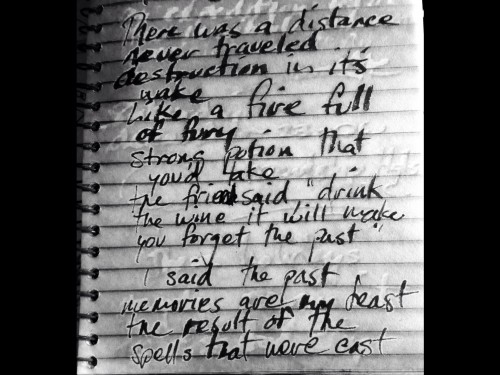 There was a distance
never traveled
destruction in it's
wake
Like a fire full
of fury
strong potion that
you'd take
the friend said "drink
the wine it will make
you forget the past"
I said the past
memories are my feast
the result of the
spells that were cast